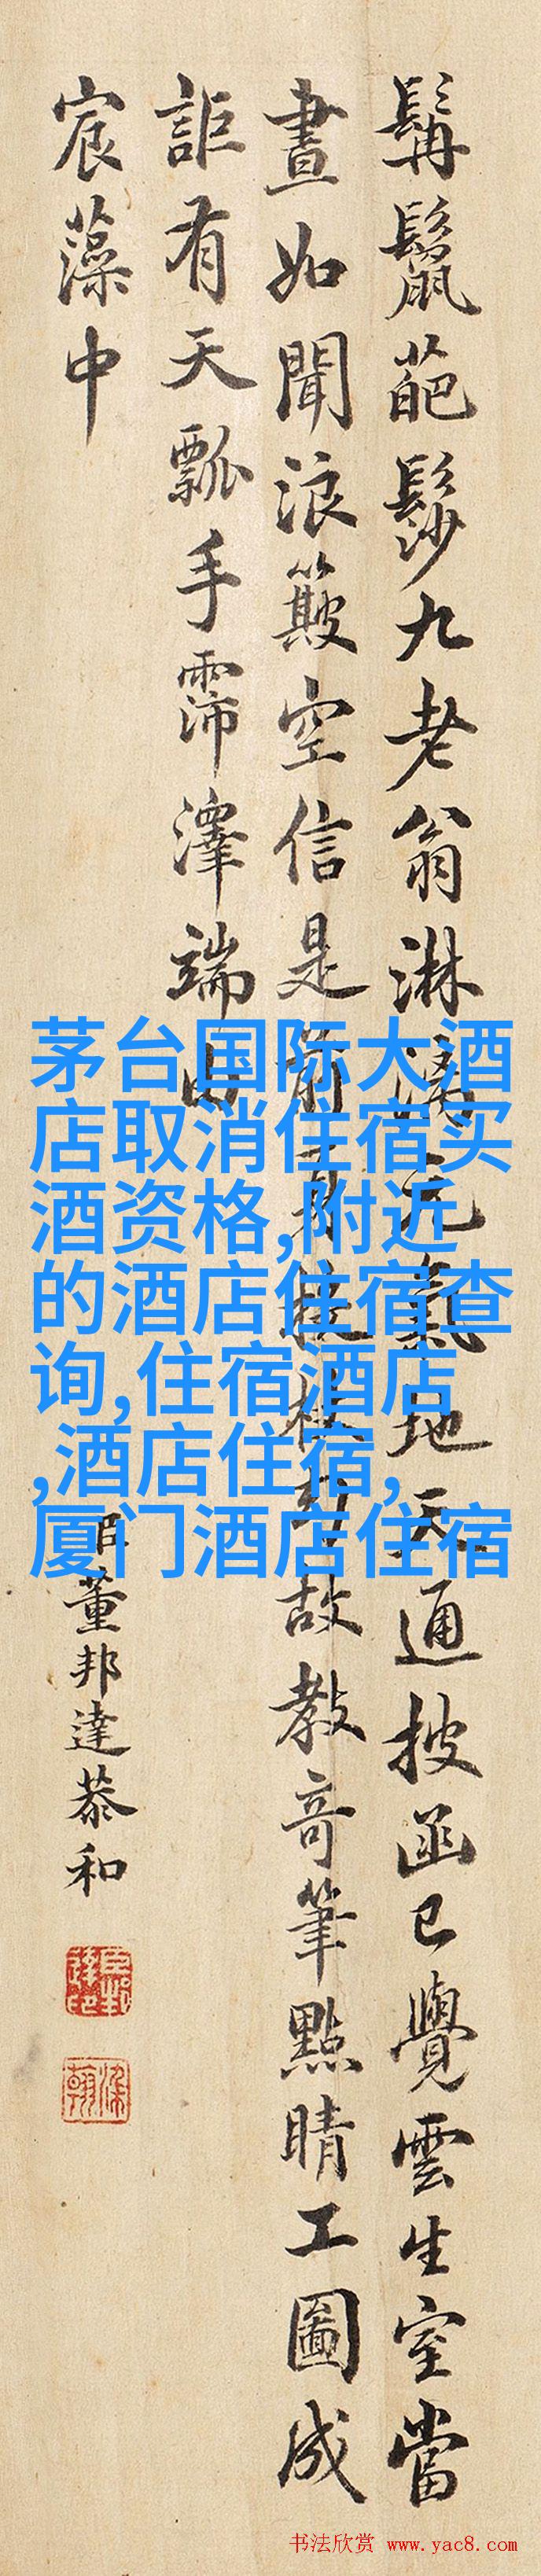 髯鬣葩髿九老翁淋漓元氣地天通披函已覺雲生室當
晝如聞浪簸空信是前身故教奇筆點睛工圖成
詎有天瓢手霈澤端由
宸藻中
臣董邦達恭和
染翰
茅台国际大酒
店取消住宿买
酒资格,附近
的酒店住宿查
询,住宿酒店
,酒店住宿,
厦门酒店住宿
书法欣赏 www.yac8.com